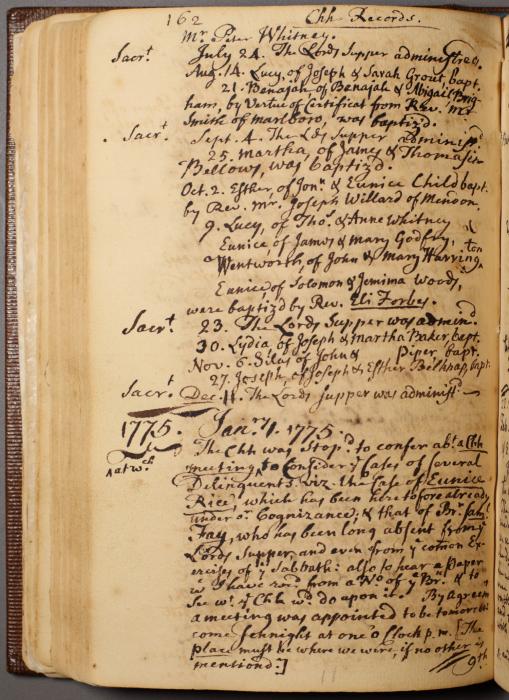 162 Chh Records.
Mr. Peter Whitney.
Sacrt. July 24. The Lords Supper administred.
Aug. 14. Lucy, of Joseph & Sarah Grout, bapt.
21. Benajah, of Benajah & Abigail Brig-
ham, by Vertue of Certificat from Rev. Mr
Smith of Marlboro, was baptizd.
Sacrt. Sept. 4. The Lds Supper administd
25. Martha, of James & Thomasin
Bellows, was baptiz'd.
Oct. 2. Esther, of Jonn. & Eunice Child bapt.
by Rev. Mr. Joseph Willard of Mendon.
9. Lucy, of Thos. & Anne Whitney
Eunice of James & Mary Godfry,
Wentworth, of John & Mary Harring^ton
Eunice, of Solomon & Jemima Woods,
were baptiz'd by Rev. Eli Forbes.
Sacrt. 23. The Lords Supper was admind.
30. Lydia, of Joseph & Martha Baker, bapt.
Nov. 6. Silas of John & Piper bapt.
27. Joseph, of Joseph & Esther Bilknap, bapt
Sacrt. Dec. 11. The Lords Supper was administd.
1775. Janry. 1. 1775.
The Chh was Stop'd to confer abt. a Chh
^at wch meeting ^ to Consider ye Cases of Several
Delinquents. viz. the Case of Eunice
Rice, which has been heretofore already
under or. Cognizance; & that of Br. Saml
Fay, who has been long absent from ye
Lords Supper, and even from ye comon Ex-
ercises of ye Sabbath: also to hear a Paper
wc I have recd from a No. of ye Brn. & to
See wt. ye Chh wd. do upon it. By agreemt
a meeting was appointed to be tomorrow
come Sennight at one o Clock p.m. [The
place must be where we were, if no other is
mentiond.] 9th